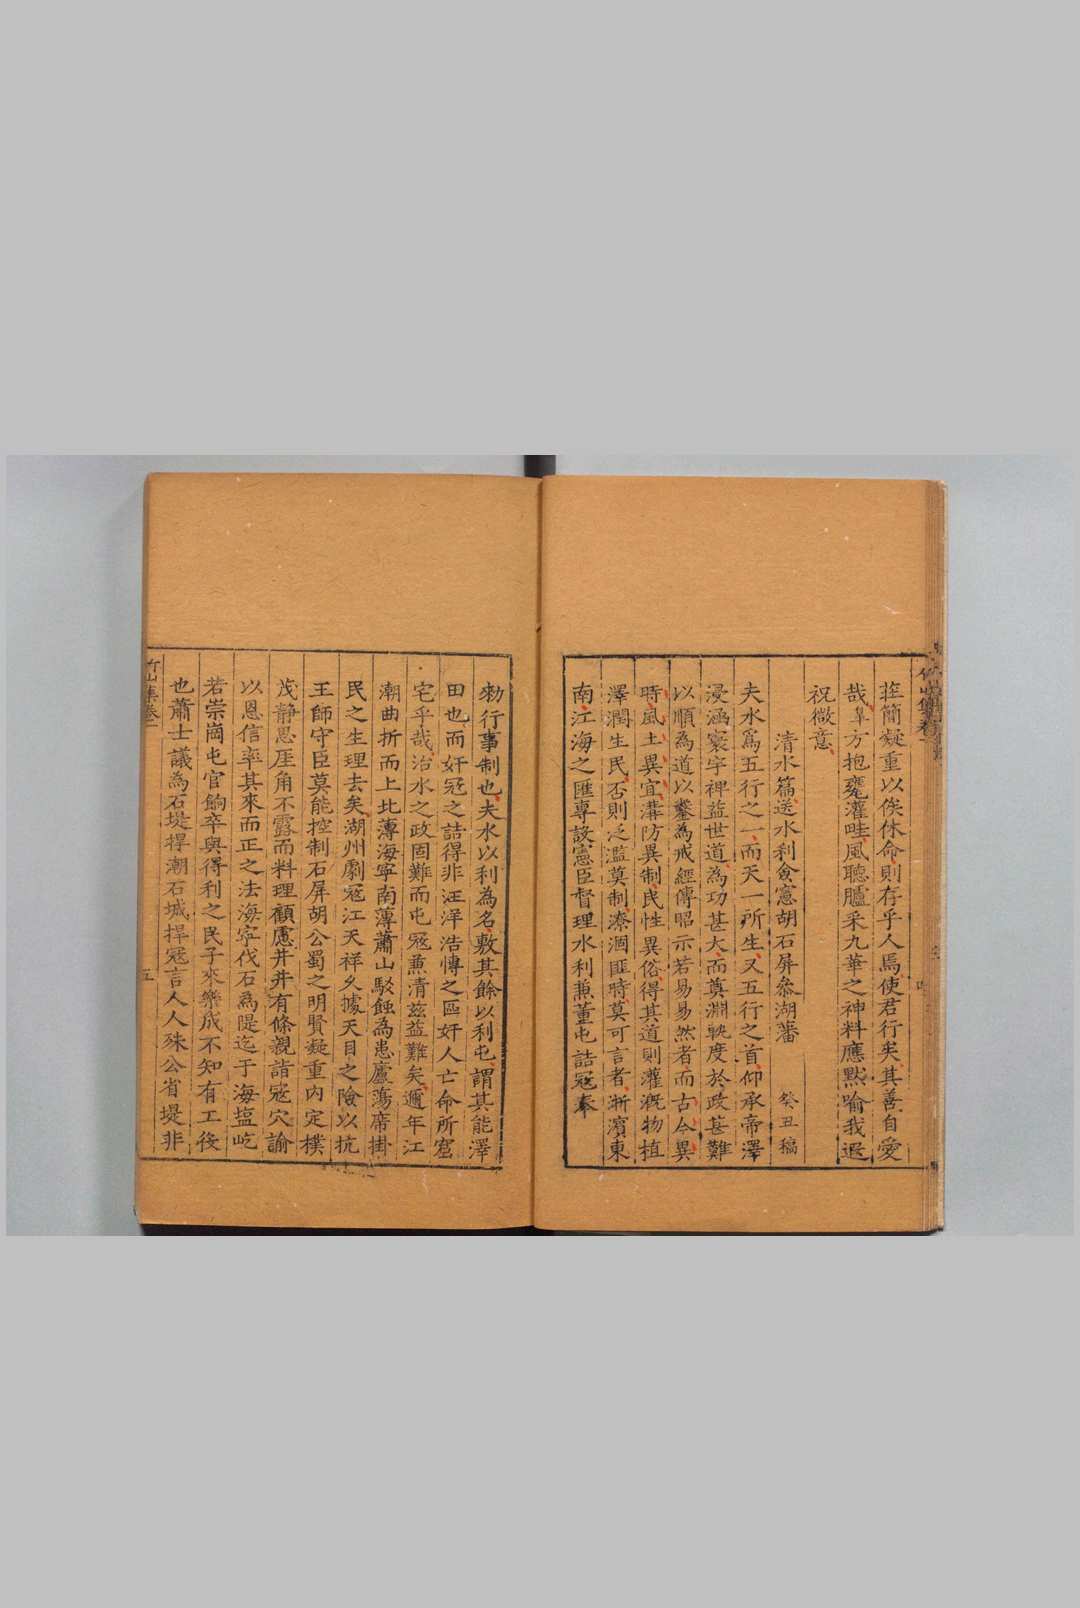 莊簡凝重以俟休命則存乎人焉使君行矣其善自愛
哉阜方抱甕灌畦風聽臚采九華之神料應默喻我遐
祝微意
清水篇送水利僉憲胡石屏叅湖藩 癸丑稿
夫水爲五行之一而天一所生又五行之首仰承帝澤
浸涵寰宇裨益世道為功甚大而奠淵軼度於政甚難
以順為道以鑿為戒經傳昭示若易易然者而古今異
時風土異宜溝防異制民性異俗得其道則灌溉物植
澤潤生民否則泛濫莫制潦涸匪時莫可言者浙濱東
南江海之匯專設憲臣督理水利兼董屯詰寇奉
勑行事制也夫水以利為名敷其餘以利屯謂其能澤
田也而奸寇之詰得非汪洋浩愽之區奸人亡命所窟
宅乎哉治水之政固難而屯寇兼清茲益難矣邇年江
潮曲折而上北薄海寧南薄蕭山駁蝕為患廬蕩席掛
民之生理去矣湖州劇寇江天祥久據天目之險以抗
王師守臣莫能控制石屏胡公蜀之明賢凝重內定樸
茂靜愚厓角不露而料理顧慮井井有條親詣寇穴諭
以恩信率其來而正之法海寧伐石為隄迄于海塩屹
若崇崗屯官餉卒與得利之民子來樂成不知有工役
也蕭士議為石堤捍潮石城捍寇言人人殊公省堤非
竹山集卷一
五